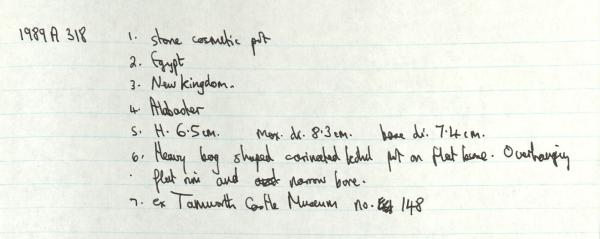 1989 A 318 1. stone cosmetic pot
2. Egypt
3. New Kingdom.
4. Alabaster
5. H. 6.5cm. max. di. 8.3cm. base di. 7.4cm.
6. Heavy bag shaped carinated kohl pot on flat base. Overhanging
flat rim and narrow bore.
7. ex Tamworth Castle Museum no. 148